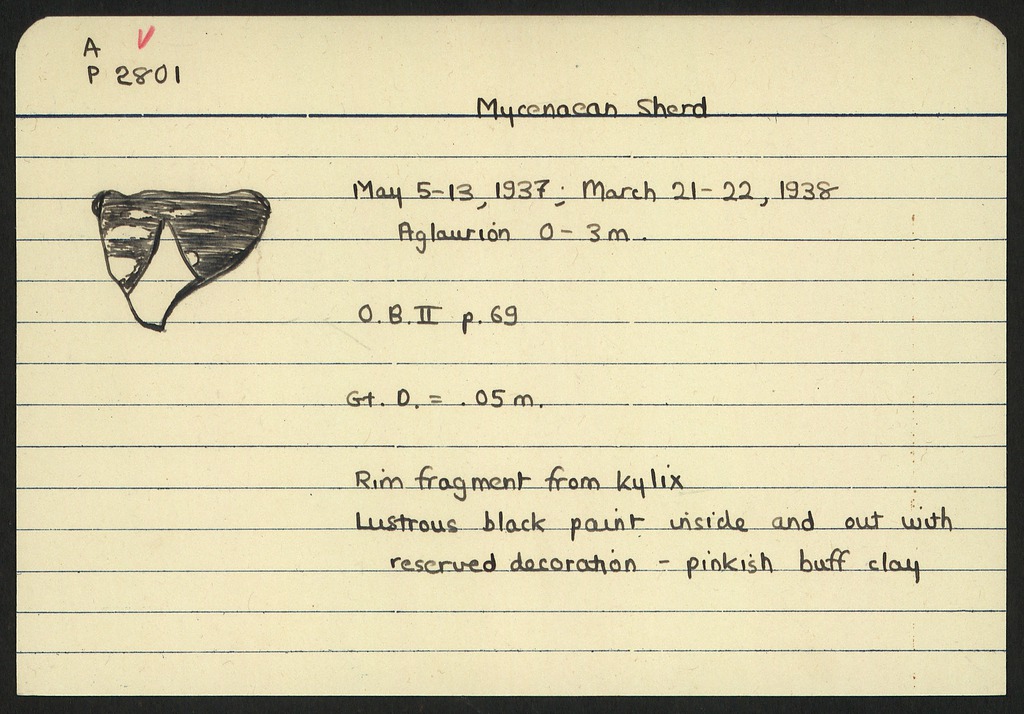 A
P 2801
Mycenaean Sherd
May 5-13, 1937; March 21-22, 1938
Aglaurion 0-3m.
O.B.II p.69
Gt. D. = .05m.
Rim fragment from kylix
Lustrous black paint inside and out with
reserved decoration - pinkish buff clay